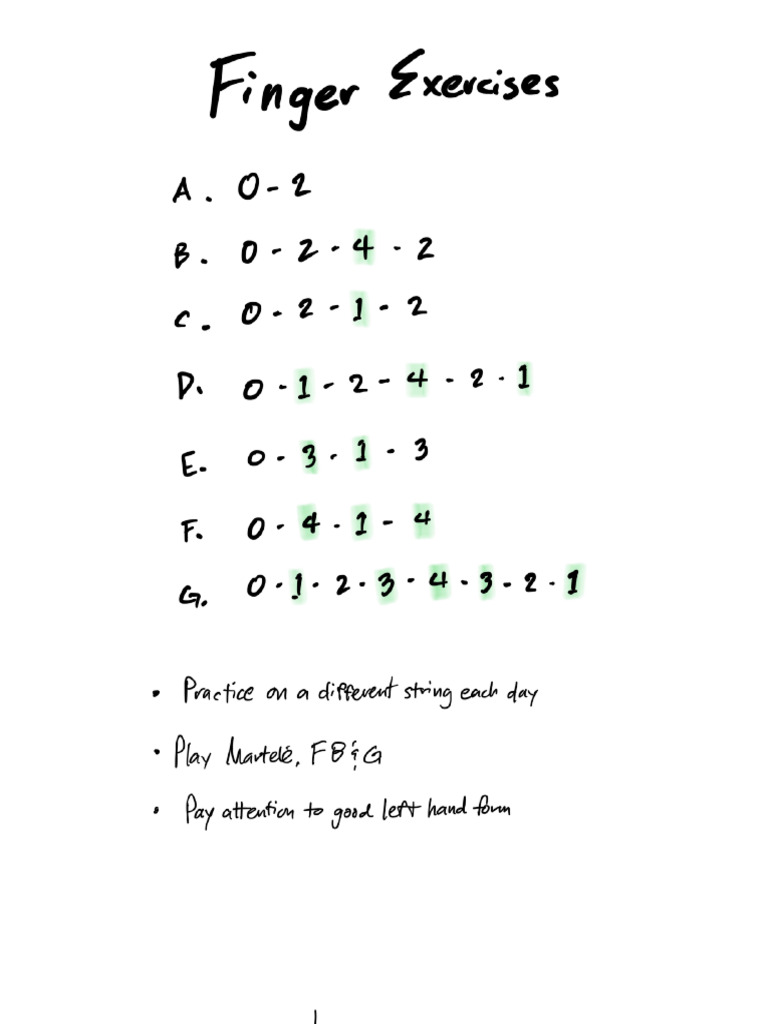 Finger Exercises
A. 0-2
B. 0-2-4-2
C. 0-2-1-2
D. 0-1-2-4-2-1
E. 0-3-1-3
F. 0-4-1-4
G. 0-1-2-3-4-3-2-1
• Practice on a different string each day
• Play Martelé, FB & G
• Pay attention to good left hand form